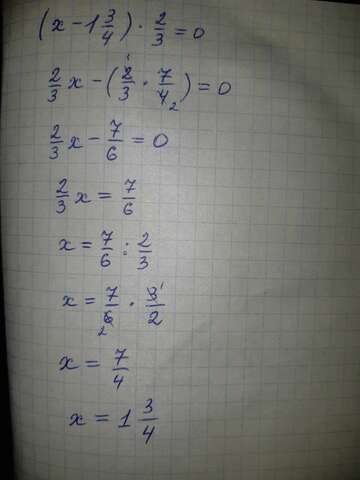 (x - 1 3/4) · 2/3 = 0
2/3 x - (2/3 · 7/4) = 0
2/3 x - 7/6 = 0
2/3 x = 7/6
x = 7/6 : 2/3
x = 7/6 · 3/2
x = 7/4
x = 1 3/4